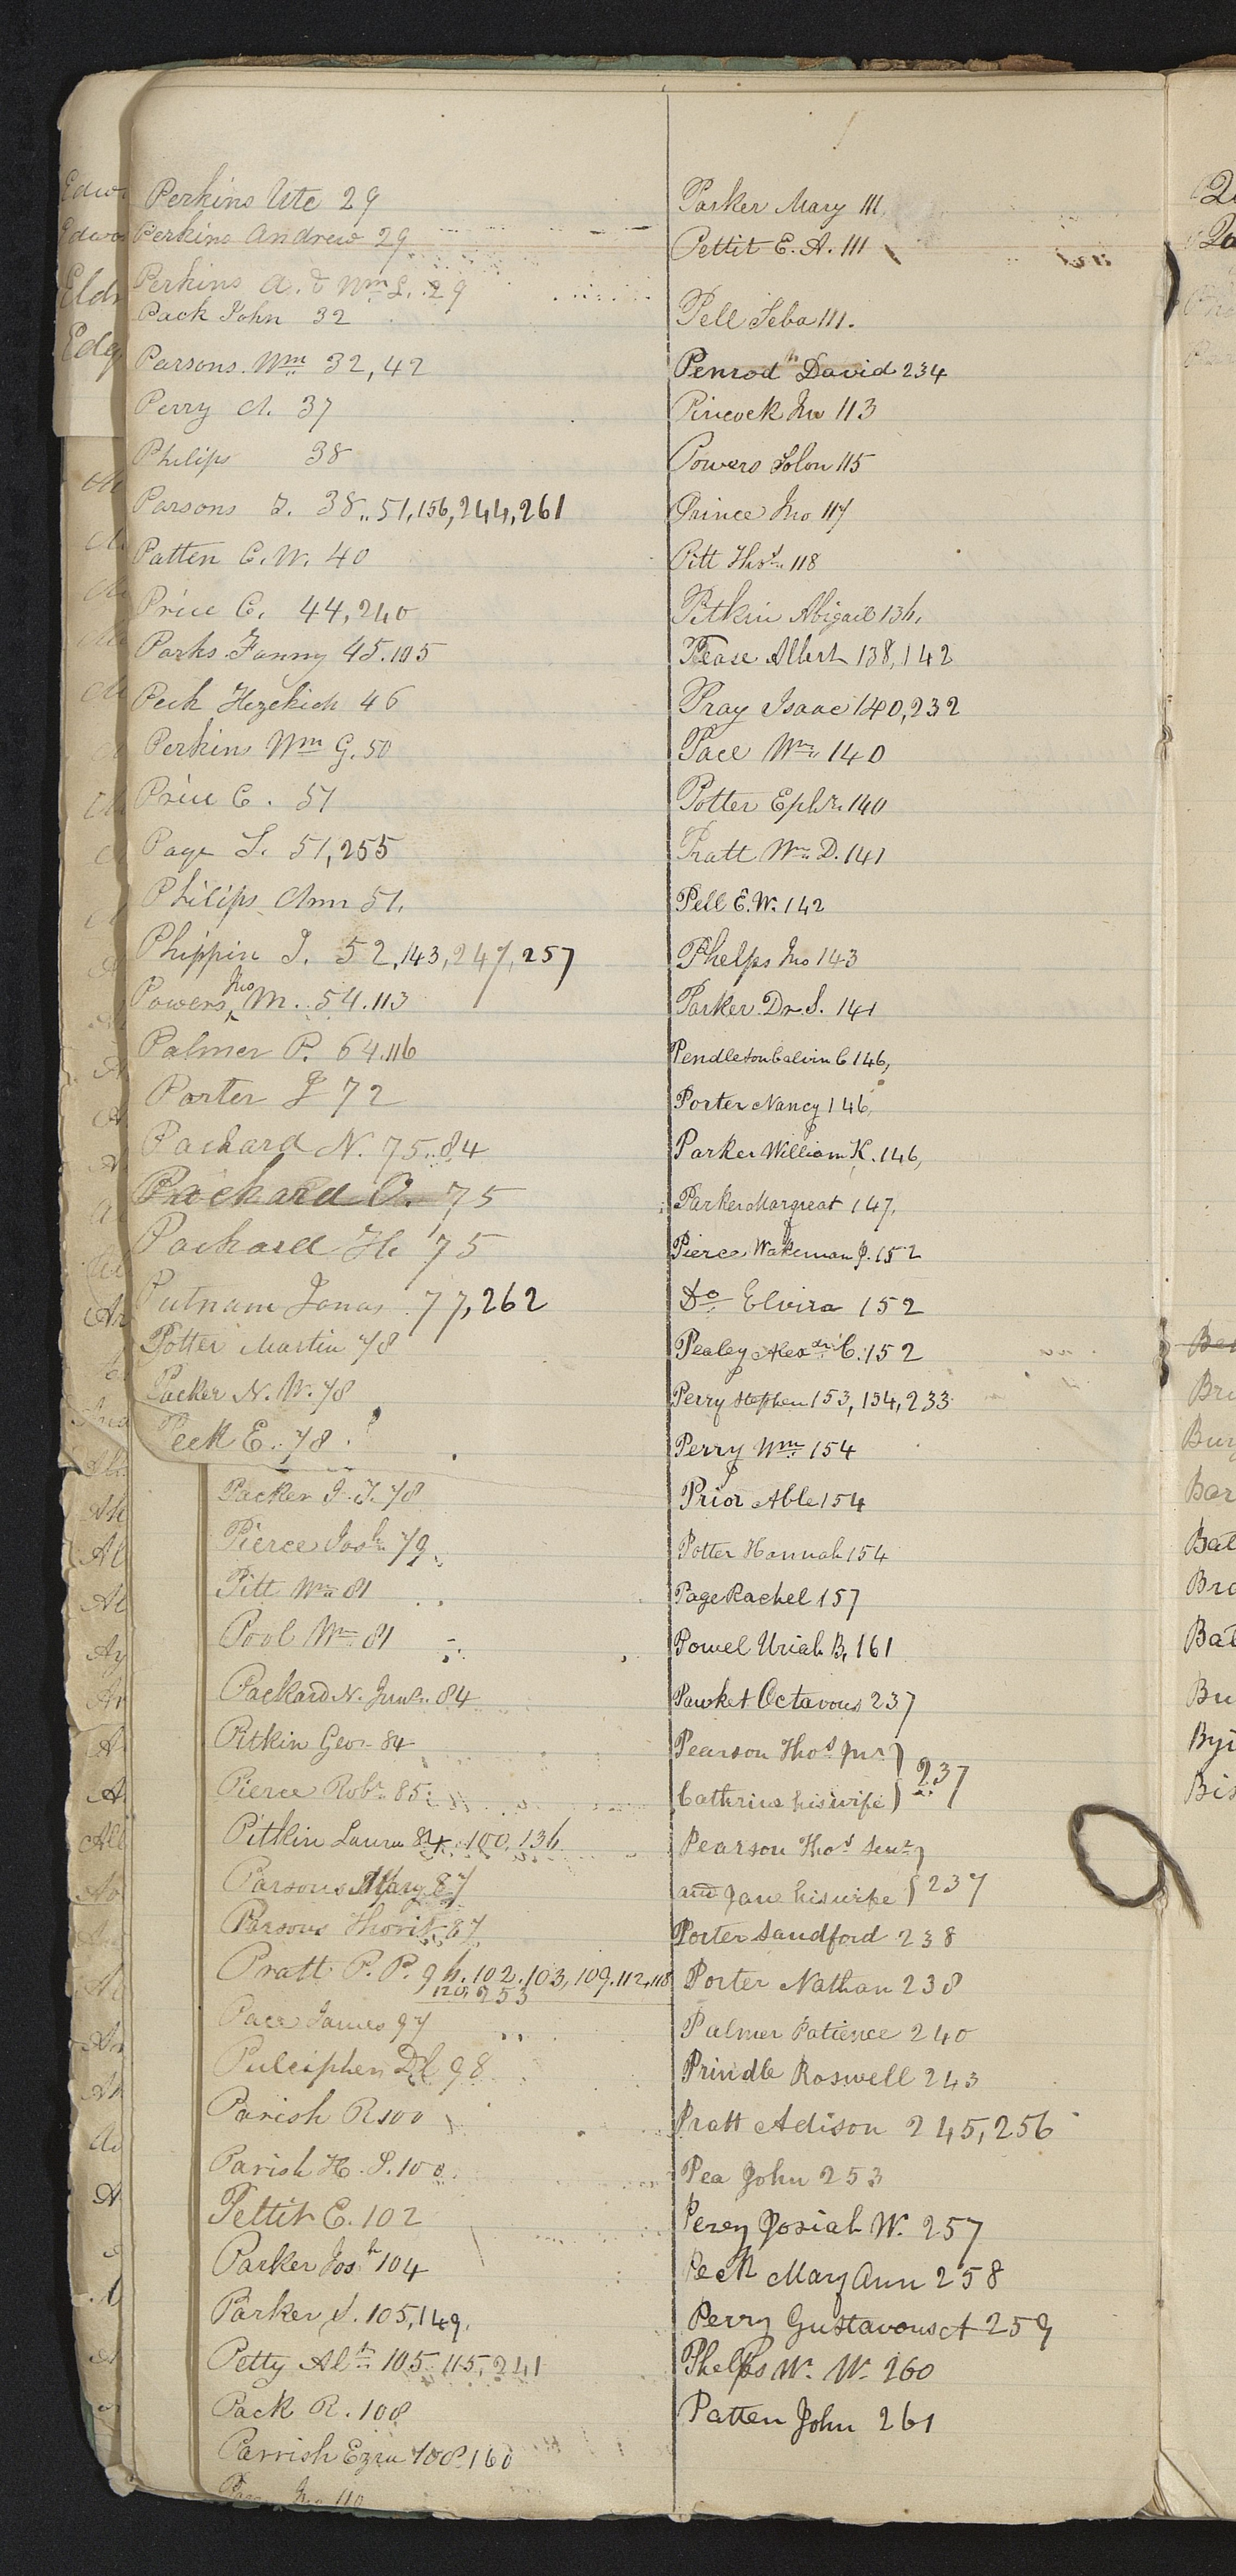 Perkins Ute 29
Perkins Andrew 29
Perkins A. & Wm L. 29
Pack John 32
Parsons Wm 32, 42
Perry A. 37
Philips 38
Parsons T. 38,, 51, 156, 244, 261
Patten C. W. 40
Price C. 44, 240
Parks Fanny 45. 105
Peck Hezekiah 46
Perkins Wm G. 50
Price C. 51
Page S. 51, 255
Philips Ann 51.
Phippin J. 52, 143, 247, 257
Powers Jno M. 54. 113
Palmer P. 64. 116
Porter J 72
Packard N. 75. 84
Packard O. 75
Packard H. 75
Putnam Jonas 77, 262
Potter Martin 78
Packer N. W. 78
Peck E. 78.
Packer J. T. 78
Pierce Josh 79
Pitt Wm 81
Pool Wm 81
Packard N. Junr. 84
Pitkin Geo. 84
Pierce Robt 85
Pitkin Laura 84. 100. 136
Parsons Mary 87
Parsons Thorit 87
Pratt P. P. 96. 102. 103, 109. 112, 118
120, 253
Pace James 97
Pulcipher 98
Parish R 100
Parish H. S. 100
Pettit E. 102
Parker Josh 104
Parker S. 105, 149.
Petty Alt 105. 115, 241
Pack R. 108
Parrish Ezra 108. 160
Jno 110
Parker Mary 111
Pettit E. A. 111
Pell Seba 111.
Penrod David 234
Pincock Jno 113
Powers Solon 115
Prince Jno 117
Pitt Thos. 118
Pitkin Abigail 136,
Pease Albert 138, 142
Pray Isaac 140, 232
Pace Wm. 140
Potter Ephr. 140
Pratt Wm. D. 141
Pell E. W. 142
Phelps Jno 143
Parker Dr S. 141
Pendleton Calvin C 146,
Porter Nancy 146,
Parker William K. 146,
Parker Margreat 147,
Pierce Wakeman P. 152
Do Elvira 152
Pealey Alexdr C. 152
Perry Stephen 153, 154, 233
Perry Wm 154
Prior Able 154
Potter Hannah 154
Page Rachel 157
Powel Uriah B, 161
Pawket Octavous 237
Pearson Thos Jnr }
Cathrine his wife } 237
Pearson Thos Senr }
and Jane his wife } 237
Porter Sandford 238
Porter Nathan 238
Palmer Patience 240
Prindle Roswell 243
Pratt Adison 245, 256
Pea John 253
Perey Josiah W. 257
Peck Mary Ann 258
Perry Gustavous A 259
Phelps W. W. 260
Patten John 261